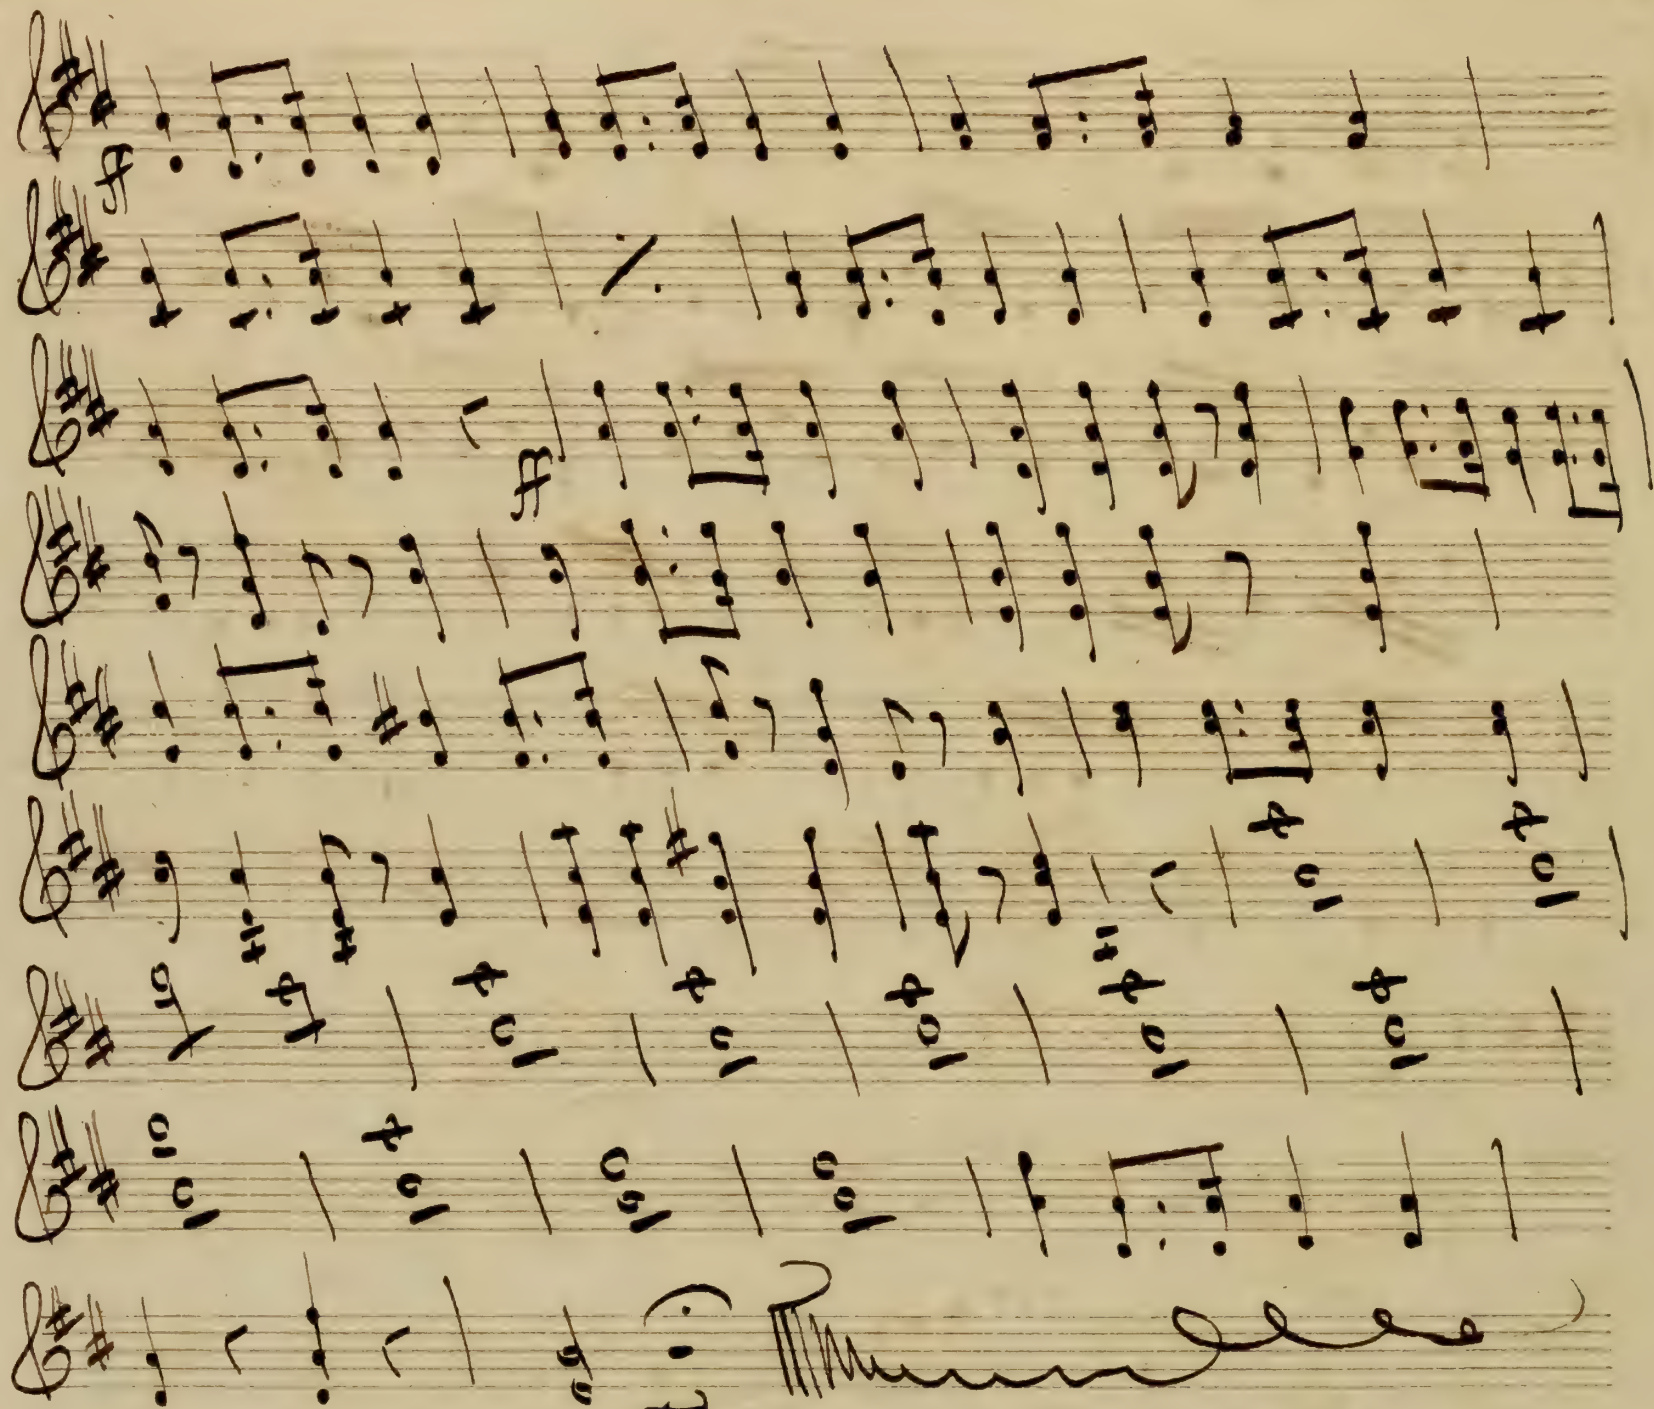 ff
ff